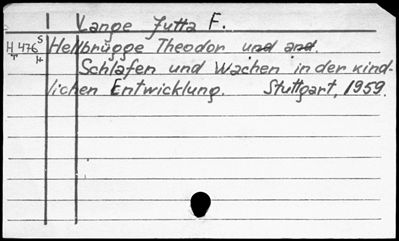 Lange Jutta F.
H 476 S Hellbrügge Theodor und and.
T H Schlafen und Wachen in der kind-
lichen Entwicklung. Stuttgart, 1959.